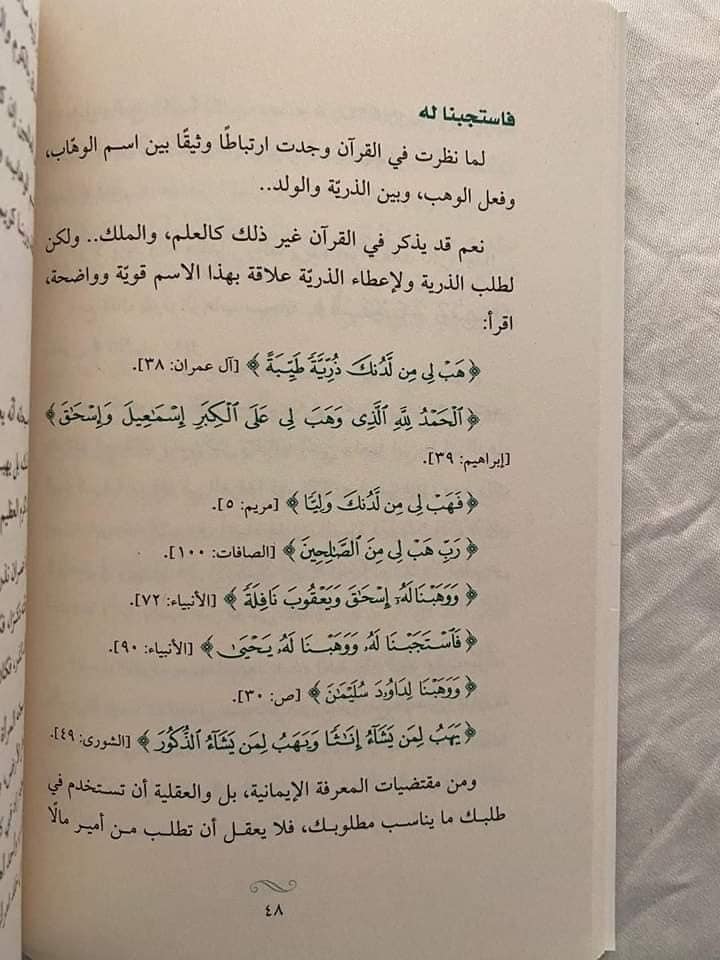 فاستجبنا له
لما نظرت في القرآن وجدت ارتباطًا وثيقًا بين اسم الوهّاب،
وفعل الوهب، وبين الذريّة والولد..
نعم قد يذكر في القرآن غير ذلك كالعلم، والملك.. ولكن
لطلب الذرية ولإعطاء الذريّة علاقة بهذا الاسم قويّة وواضحة،
اقرأ:
﴿هَبْ لِى مِن لَّدُنكَ ذُرِّيَّةً طَيِّبَةً﴾ [آل عمران: ٣٨].
﴿الْحَمْدُ لِلَّهِ الَّذِى وَهَبَ لِى عَلَى الْكِبَرِ إِسْمَاعِيلَ وَإِسْحَاقَ﴾
[إبراهيم: ٣٩].
﴿فَهَبْ لِى مِن لَّدُنكَ وَلِيًّا﴾ [مريم: ٥].
﴿رَبِّ هَبْ لِى مِنَ الصَّالِحِينَ﴾ [الصافات: ١٠٠].
﴿وَوَهَبْنَا لَهُۥ إِسْحَاقَ وَيَعْقُوبَ نَافِلَةً﴾ [الأنبياء: ٧٢].
﴿فَاسْتَجَبْنَا لَهُۥ وَوَهَبْنَا لَهُۥ يَحْيَىٰ﴾ [الأنبياء: ٩٠].
﴿وَوَهَبْنَا لِدَاوُودَ سُلَيْمَانَ﴾ [ص: ٣٠].
﴿يَهَبُ لِمَن يَشَآءُ إِنَاثًا وَيَهَبُ لِمَن يَشَآءُ الذُّكُورَ﴾ [الشورى: ٤٩].
ومن مقتضيات المعرفة الإيمانية، بل والعقلية أن تستخدم في
طلبك ما يناسب مطلوبك، فلا يعقل أن تطلب من أمير مالًا
٤٨